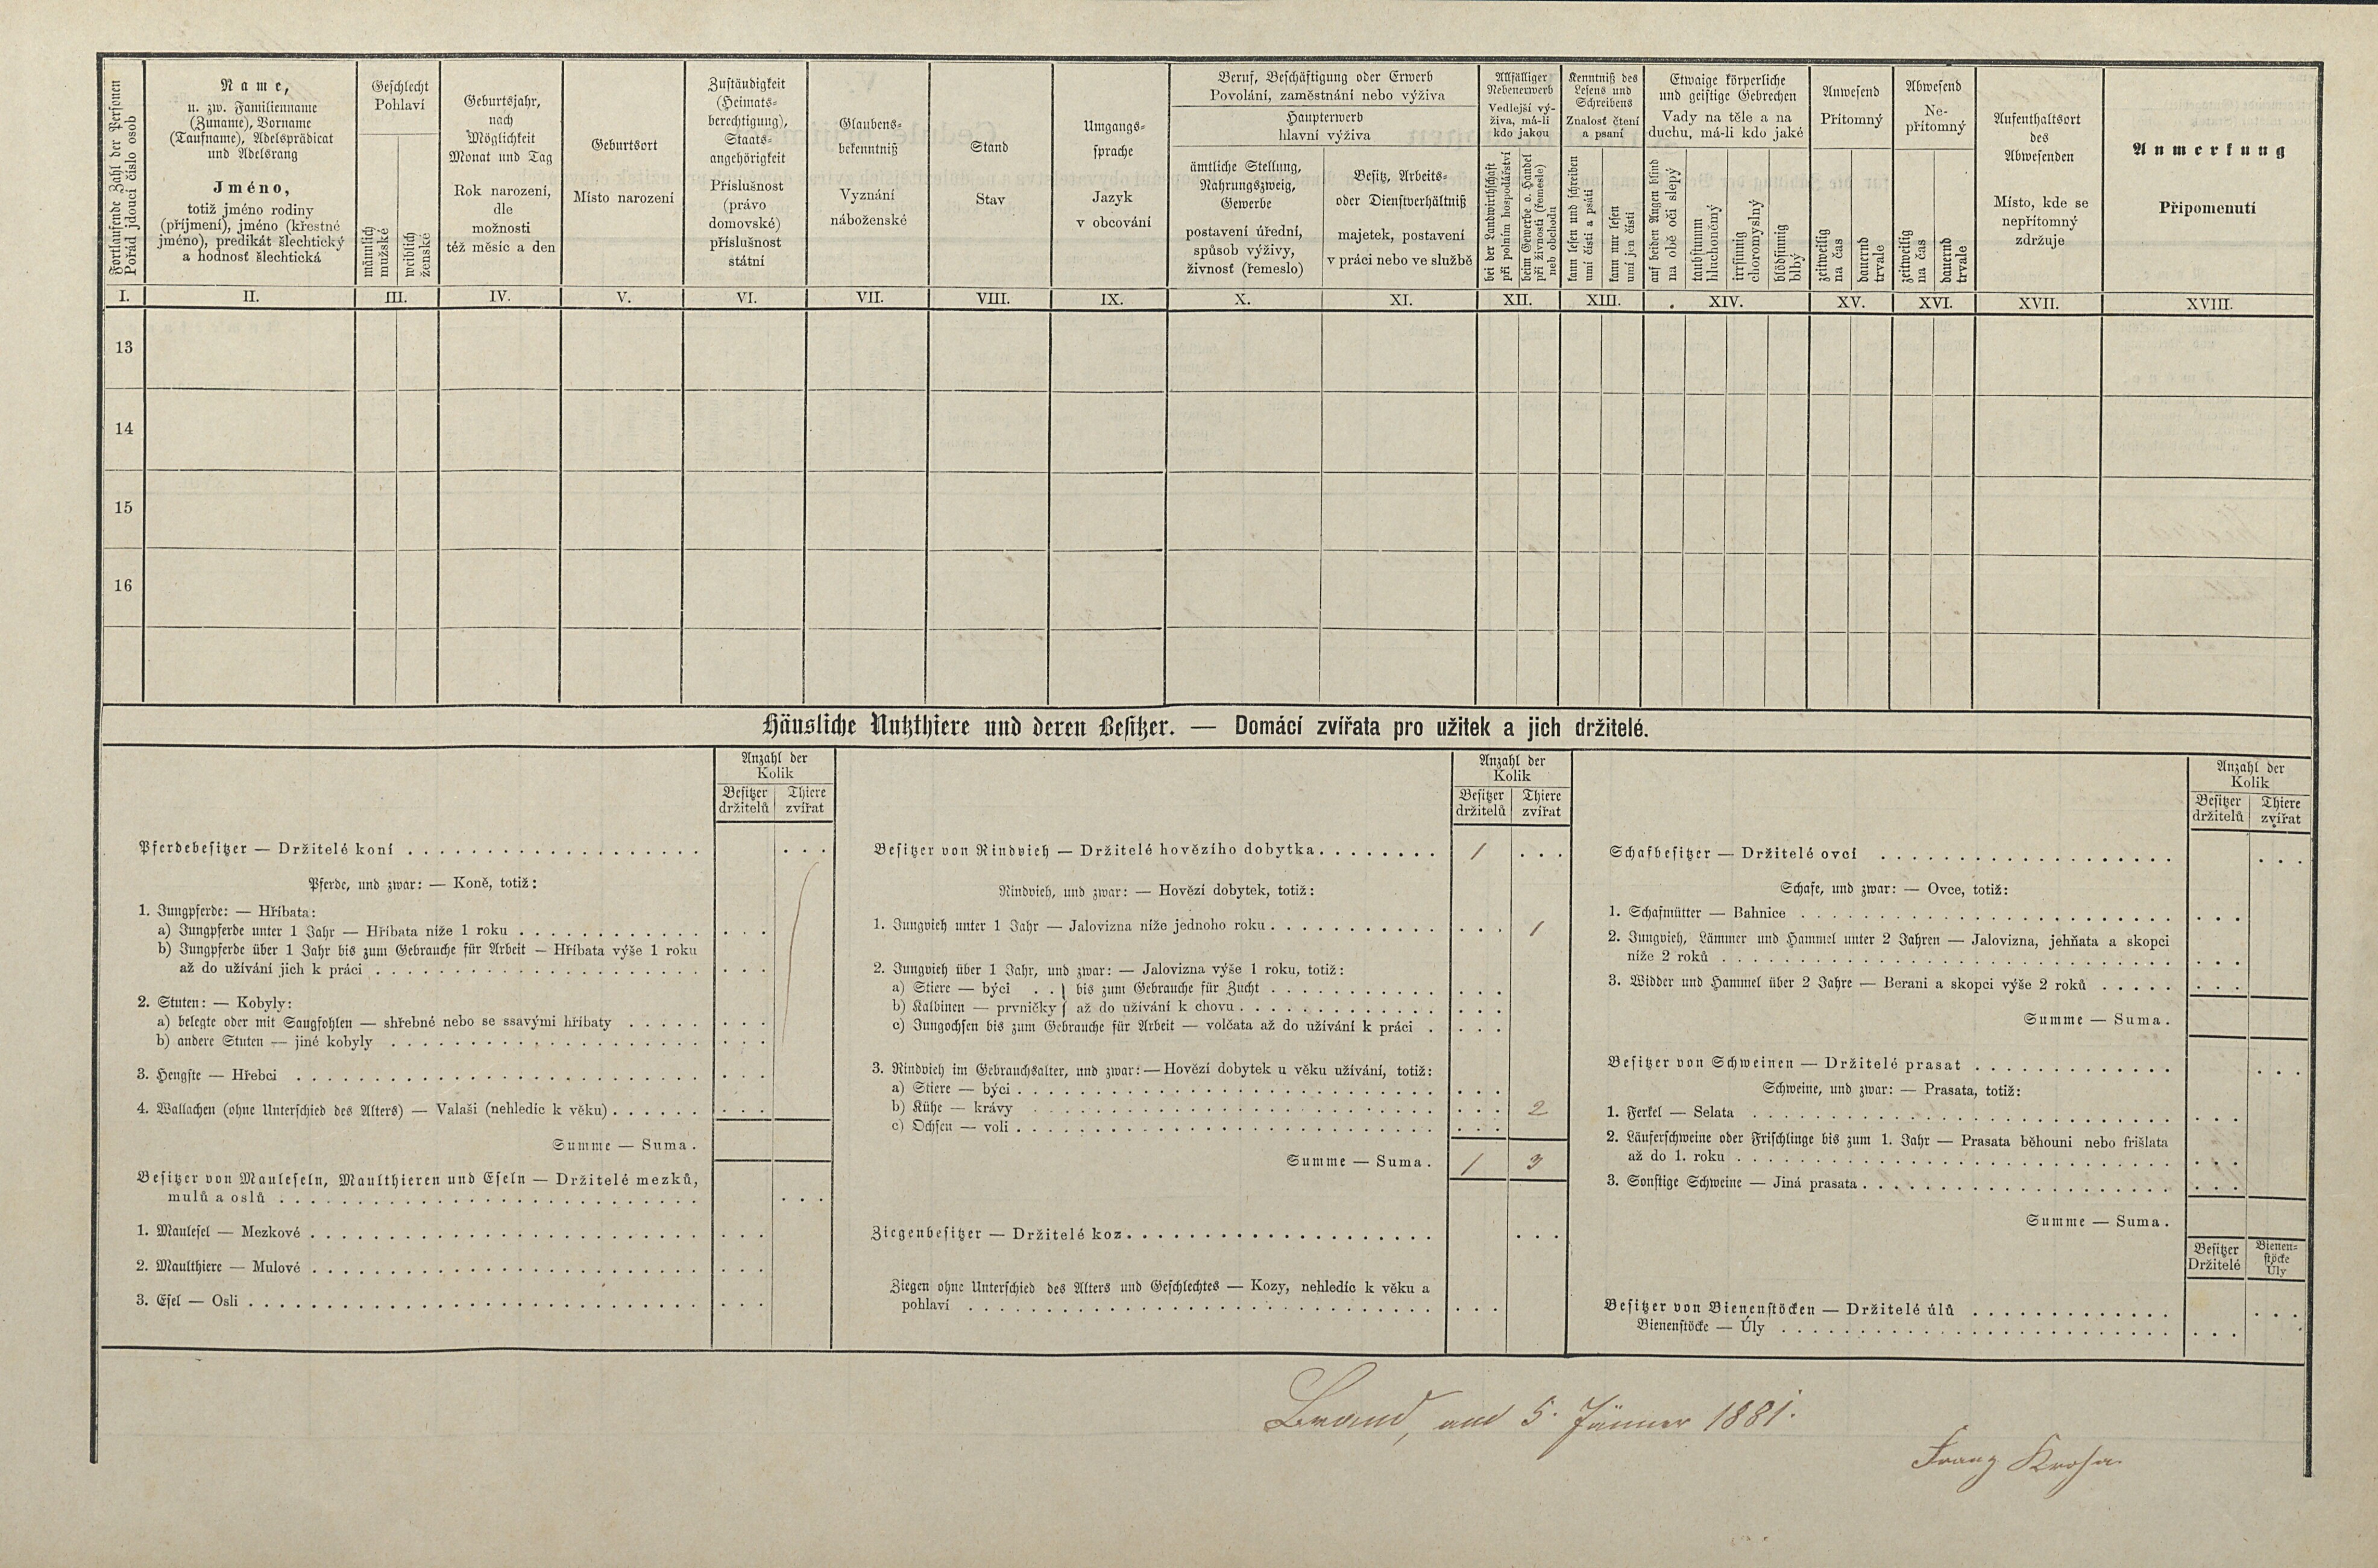 Fortlaufende Zahl der Personen
Pořád jdoucí číslo osob
Name,
u. zw. Familienname
(Zuname), Vorname
(Taufname), Adelsprädicat
und Adelsrang
Jméno,
totiž jméno rodiny
(příjmení), jméno (křestné
jméno), predikát šlechtický
a hodnosť šlechtická
Geschlecht
Pohlaví
männlich
mužské
weiblich
ženské
Geburtsjahr,
nach
Möglichkeit
Monat und Tag
Rok narození,
dle
možnosti
též měsíc a den
Geburtsort
Místo narození
Zuständigkeit
(Heimats-
berechtigung),
Staats-
angehörigkeit
Příslušnost
(právo
domovské)
příslušnost
státní
Glaubens-
bekenntniß
Vyznání
náboženské
Stand
Stav
Umgangs-
sprache
Jazyk
v obcování
Beruf, Beschäftigung oder Erwerb
Povolání, zaměstnání nebo výživa
Haupterwerb
hlavní výživa
ämtliche Stellung,
Nahrungszweig,
Gewerbe
postavení úřední,
spůsob výživy,
živnosť (řemeslo)
Besitz, Arbeits-
oder Dienstverhältniß
majetek, postavení
v práci nebo ve službě
Allfälliger
Nebenerwerb
Vedlejší vý-
živa, má-li
kdo jakou
bei der Landwirthschaft
při polním hospodářství
beim Gewerbe o. Handel
při živnosti (řemesle)
neb obchodu
Kenntniß des
Lesens und
Schreibens
Znalosť čtení
a psaní
kann lesen und schreiben
umí čísti a psáti
kann nur lesen
umí jen čísti
Etwaige körperliche
und geistige Gebrechen
Vady na těle a na
duchu, má-li kdo jaké
auf beiden Augen blind
na obě oči slepý
taubstumm
hluchoněmý
irrsinnig
choromyslný
blödsinnig
blbý
Anwesend
Přítomný
zeitweilig
na čas
dauernd
trvale
Abwesend
Ne-
přítomný
zeitweilig
na čas
dauernd
trvale
Aufenthaltsort
des
Abwesenden
Místo, kde se
nepřítomný
zdržuje
Anmerkung
Připomenutí
I. II. III. IV. V. VI. VII. VIII. IX. X. XI. XII. XIII. XIV. XV. XVI. XVII. XVIII.
13
14
15
16
Häusliche Nutzthiere und deren Besitzer. — Domácí zvířata pro užitek a jich držitelé.
Anzahl der
Kolik
Besitzer Thiere
držitelů zvířat
Pferdebesitzer — Držitelé koní
Pferde, und zwar: — Koně, totiž:
1. Jungpferde: — Hříbata:
a) Jungpferde unter 1 Jahr — Hříbata níže 1 roku
b) Jungpferde über 1 Jahr bis zum Gebrauche für Arbeit — Hříbata výše 1 roku
až do užívání jich k práci
2. Stuten: — Kobyly:
a) belegte oder mit Saugfohlen — shřebné nebo se ssavými hříbaty
b) andere Stuten — jiné kobyly
3. Hengste — Hřebci
4. Wallachen (ohne Unterschied des Alters) — Valaši (nehledíc k věku)
Summe — Suma.
Besitzer von Mauleseln, Maulthieren und Eseln — Držitelé mezků,
mulů a oslů
1. Maulesel — Mezkové
2. Maulthiere — Mulové
3. Esel — Osli
Anzahl der
Kolik
Besitzer Thiere
držitelů zvířat
Besitzer von Rindvieh — Držitelé hovězího dobytka 1
Rindvieh, und zwar: — Hovězí dobytek, totiž:
1. Jungvieh unter 1 Jahr — Jalovizna níže jednoho roku 1
2. Jungvieh über 1 Jahr, und zwar: — Jalovizna výše 1 roku, totiž:
a) Stiere — býci } bis zum Gebrauche für Zucht
b) Kalbinen — prvničky } až do užívání k chovu
c) Jungochsen bis zum Gebrauche für Arbeit — volčata až do užívání k práci
3. Rindvieh im Gebrauchsalter, und zwar: — Hovězí dobytek u věku užívání, totiž:
a) Stiere — býci
b) Kühe — krávy 2
c) Ochsen — voli
Summe — Suma. 1 3
Ziegenbesitzer — Držitelé koz
Ziegen ohne Unterschied des Alters und Geschlechtes — Kozy, nehledíc k věku a
pohlaví
Anzahl der
Kolik
Besitzer Thiere
držitelů zvířat
Schafbesitzer — Držitelé ovcí
Schafe, und zwar: — Ovce, totiž:
1. Schafmütter — Bahnice
2. Jungvieh, Lämmer und Hammel unter 2 Jahren — Jalovizna, jehňata a skopci
níže 2 roků
3. Widder und Hammel über 2 Jahre — Berani a skopci výše 2 roků
Summe — Suma.
Besitzer von Schweinen — Držitelé prasat
Schweine, und zwar: — Prasata, totiž:
1. Ferkel — Selata
2. Läuferschweine oder Frischlinge bis zum 1. Jahr — Prasata běhouni nebo frišlata
až do 1. roku
3. Sonstige Schweine — Jiná prasata
Summe — Suma.
Besitzer
Držitelé
Bienen-
stöcke
Úly
Besitzer von Bienenstöcken — Držitelé úlů
Bienenstöcke — Úly
Brand, am 5. Jänner 1881.
Franz